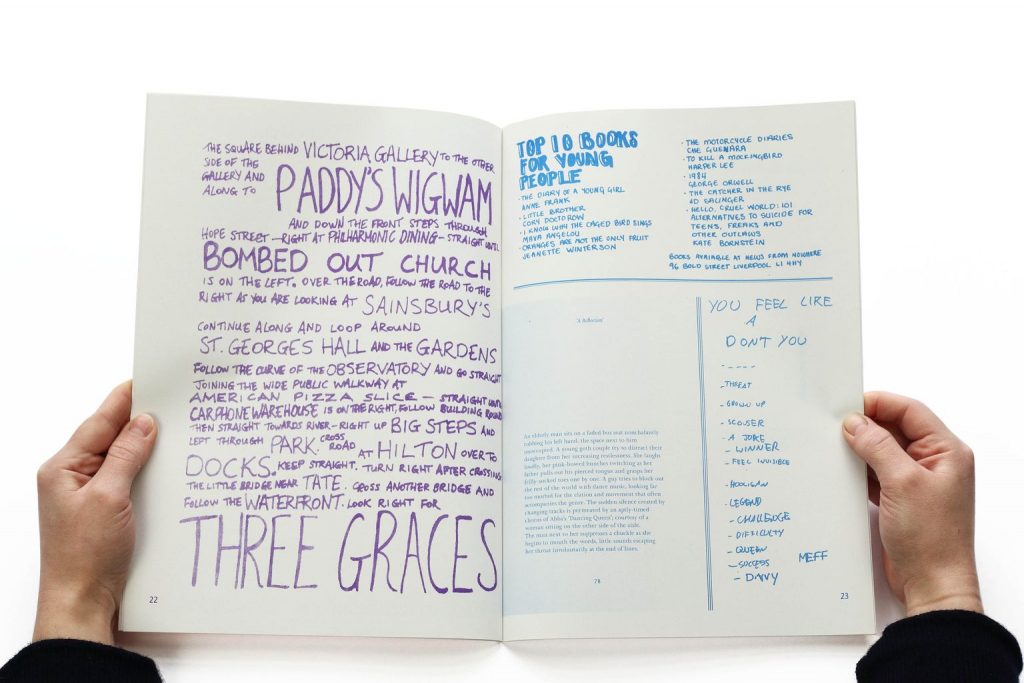 THE SQUARE BEHIND VICTORIA GALLERY TO THE OTHER
SIDE OF THE
GALLERY AND
ALONG TO
PADDY'S WIGWAM
AND DOWN THE FRONT STEPS THROUGH
HOPE STREET - RIGHT AT PHILHARMONIC DINING - STRAIGHT UNTIL
BOMBED OUT CHURCH
IS ON THE LEFT. OVER THE ROAD, FOLLOW THE ROAD TO THE
RIGHT AS YOU ARE LOOKING AT SAINSBURY'S
CONTINUE ALONG AND LOOP AROUND
ST. GEORGES HALL AND THE GARDENS
FOLLOW THE CURVE OF THE OBSERVATORY AND GO STRAIGHT
JOINING THE WIDE PUBLIC WALKWAY AT
AMERICAN PIZZA SLICE - STRAIGHT UNTIL
CARPHONE WAREHOUSE IS ON THE RIGHT, FOLLOW BUILDING ROUND
THEN STRAIGHT TOWARDS RIVER - RIGHT UP BIG STEPS AND
LEFT THROUGH PARK. CROSS ROAD AT HILTON OVER TO
DOCKS. KEEP STRAIGHT. TURN RIGHT AFTER CROSSING
THE LITTLE BRIDGE NEAR TATE. CROSS ANOTHER BRIDGE AND
FOLLOW THE WATERFRONT. LOOK RIGHT FOR
THREE GRACES
22
TOP 10 BOOKS
FOR YOUNG
PEOPLE
· THE DIARY OF A YOUNG GIRL
ANNE FRANK
· LITTLE BROTHER
CORY DOCTOROW
· I KNOW WHY THE CAGED BIRD SINGS
MAYA ANGELOU
· ORANGES ARE NOT THE ONLY FRUIT
JEANETTE WINTERSON
· THE MOTORCYCLE DIARIES
CHE GUEVARA
· TO KILL A MOCKINGBIRD
HARPER LEE
· 1984
GEORGE ORWELL
· THE CATCHER IN THE RYE
JD SALINGER
· HELLO, CRUEL WORLD: 101
ALTERNATIVES TO SUICIDE FOR
TEENS, FREAKS AND
OTHER OUTLAWS
KATE BORNSTEIN
BOOKS AVAILABLE AT NEWS FROM NOWHERE
96 BOLD STREET LIVERPOOL L1 4HY
'A Reflection'
An elderly man sits on a faded bus seat nonchalantly
rubbing his left hand, the space next to him
unoccupied. A young goth couple try to distract their
daughter from her increasing restlessness. She laughs
loudly, her pink-bowed bunches twitching as her
father pulls out his pierced tongue and grasps her
frilly-socked toes one by one. A guy tries to block out
the rest of the world with dance music, looking far
too morbid for the elation and movement that often
accompanies the genre. The sudden silence created by
changing tracks is permeated by an aptly-timed
chorus of Abba's 'Dancing Queen'; courtesy of a
woman sitting on the other side of the aisle.
The man next to her suppresses a chuckle as she
begins to mouth the words, little sounds escaping
her throat involuntarily at the end of lines.
78
YOU FEEL LIKE
A
DONT YOU
- - - -
- THREAT
- GROWN UP
- SCOUSER
- A JOKE
- WINNER
- FEEL INVISIBLE
- HOOLIGAN
- LEGEND
- CHALLENGE
- DIFFICULTY
- QUEEN
- SUCCESS
MEFF
- DAVY
23